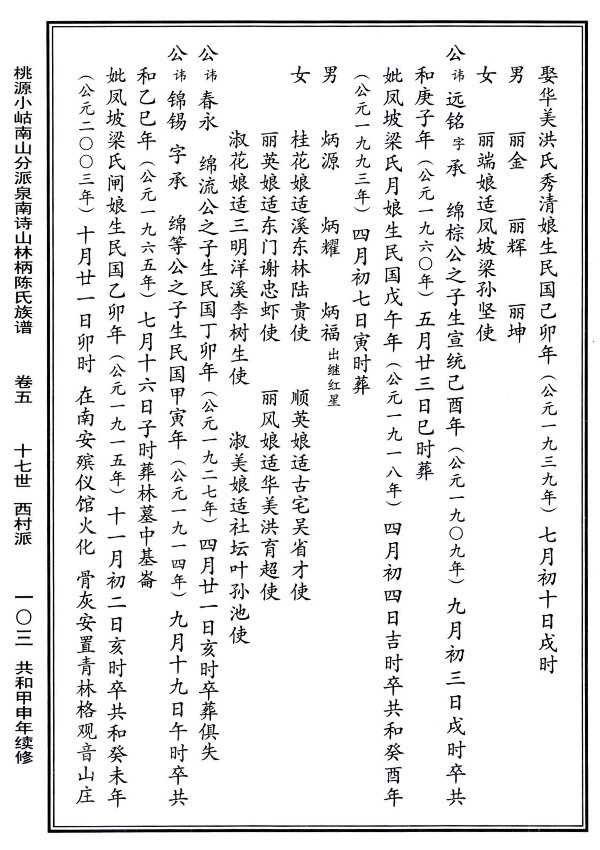 娶华美洪氏秀清娘生民国己卯年（公元一九三九年）七月初十日戌时
男 丽金 丽辉 丽坤
女 丽端娘适凤坡梁孙坚使
公讳远铭字承 绵棕公之子生宣统己酉年（公元一九〇九年）九月初三日戌时卒共
和庚子年（公元一九六〇年）五月廿三日巳时葬
妣凤坡梁氏月娘生民国戊午年（公元一九一八年）四月初四日吉时卒共和癸酉年
（公元一九九三年）四月初七日寅时葬
男 炳源 炳耀 炳福出继红星
女 桂花娘适溪东林陆贵使 顺英娘适古宅吴省才使
丽英娘适东门谢忠虾使 丽风娘适华美洪育超使
淑花娘适三明洋溪李树生使 淑美娘适社坛叶孙池使
公讳春永 绵流公之子生民国丁卯年（公元一九二七年）四月廿一日亥时卒葬俱失
公讳锦锡字承 绵等公之子生民国甲寅年（公元一九一四年）九月十九日午时卒共
和乙巳年（公元一九六五年）七月十六日子时葬林墓中基崙
妣凤坡梁氏闸娘生民国乙卯年（公元一九一五年）十一月初二日亥时卒共和癸未年
（公元二〇〇三年）十月廿一日卯时 在南安殡仪馆火化 骨灰安置青林格观音山庄
桃源小岵南山分派泉南诗山林柄陈氏族谱 卷五 十七世 西村派 一〇三 共和甲申年续修